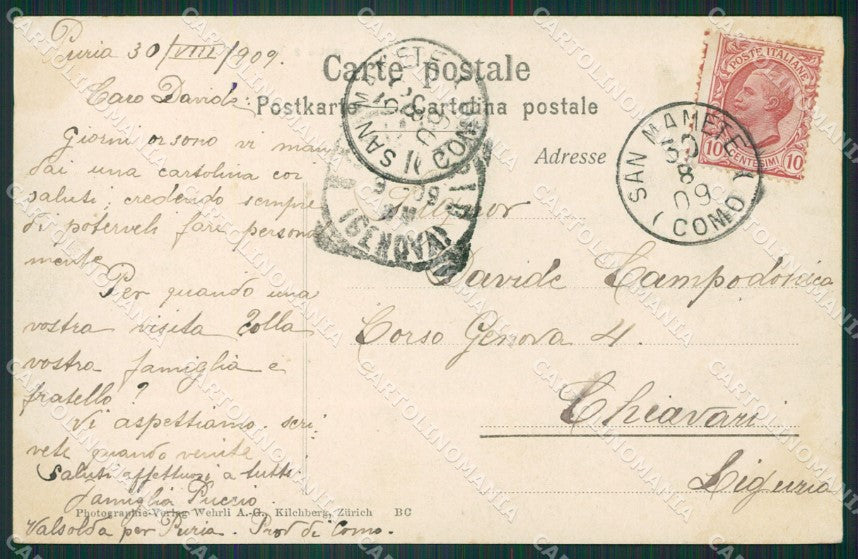 Puria 30/VIII/909.
Carte postale
Postkarte Cartolina postale
Adresse
Caro Davide:
Giorni or sono vi man
dai una cartolina coi
saluti, credendo sempre
di poterveli fare person
mente.
Per quando una
vostra visita colla
vostra famiglia e
fratello?
Vi aspettiamo. scri
vete quando venite
Saluti affettuosi a tutti
famiglia Puccio.
Valsolda per Puria. Prov di Como.
Photographie-Verlag Wehrli A.-G., Kilchberg, Zürich BC
Signor
Davide Campodonico
Corso Genova 4.
Chiavari
Liguria
POSTE ITALIANE
10 CENTESIMI 10
SAN MAMETE
8
09
(COMO)
SAN MAMETE
8
09
(COMO)
CHIAVARI
(GENOVA)
CARTOLINOMANIA